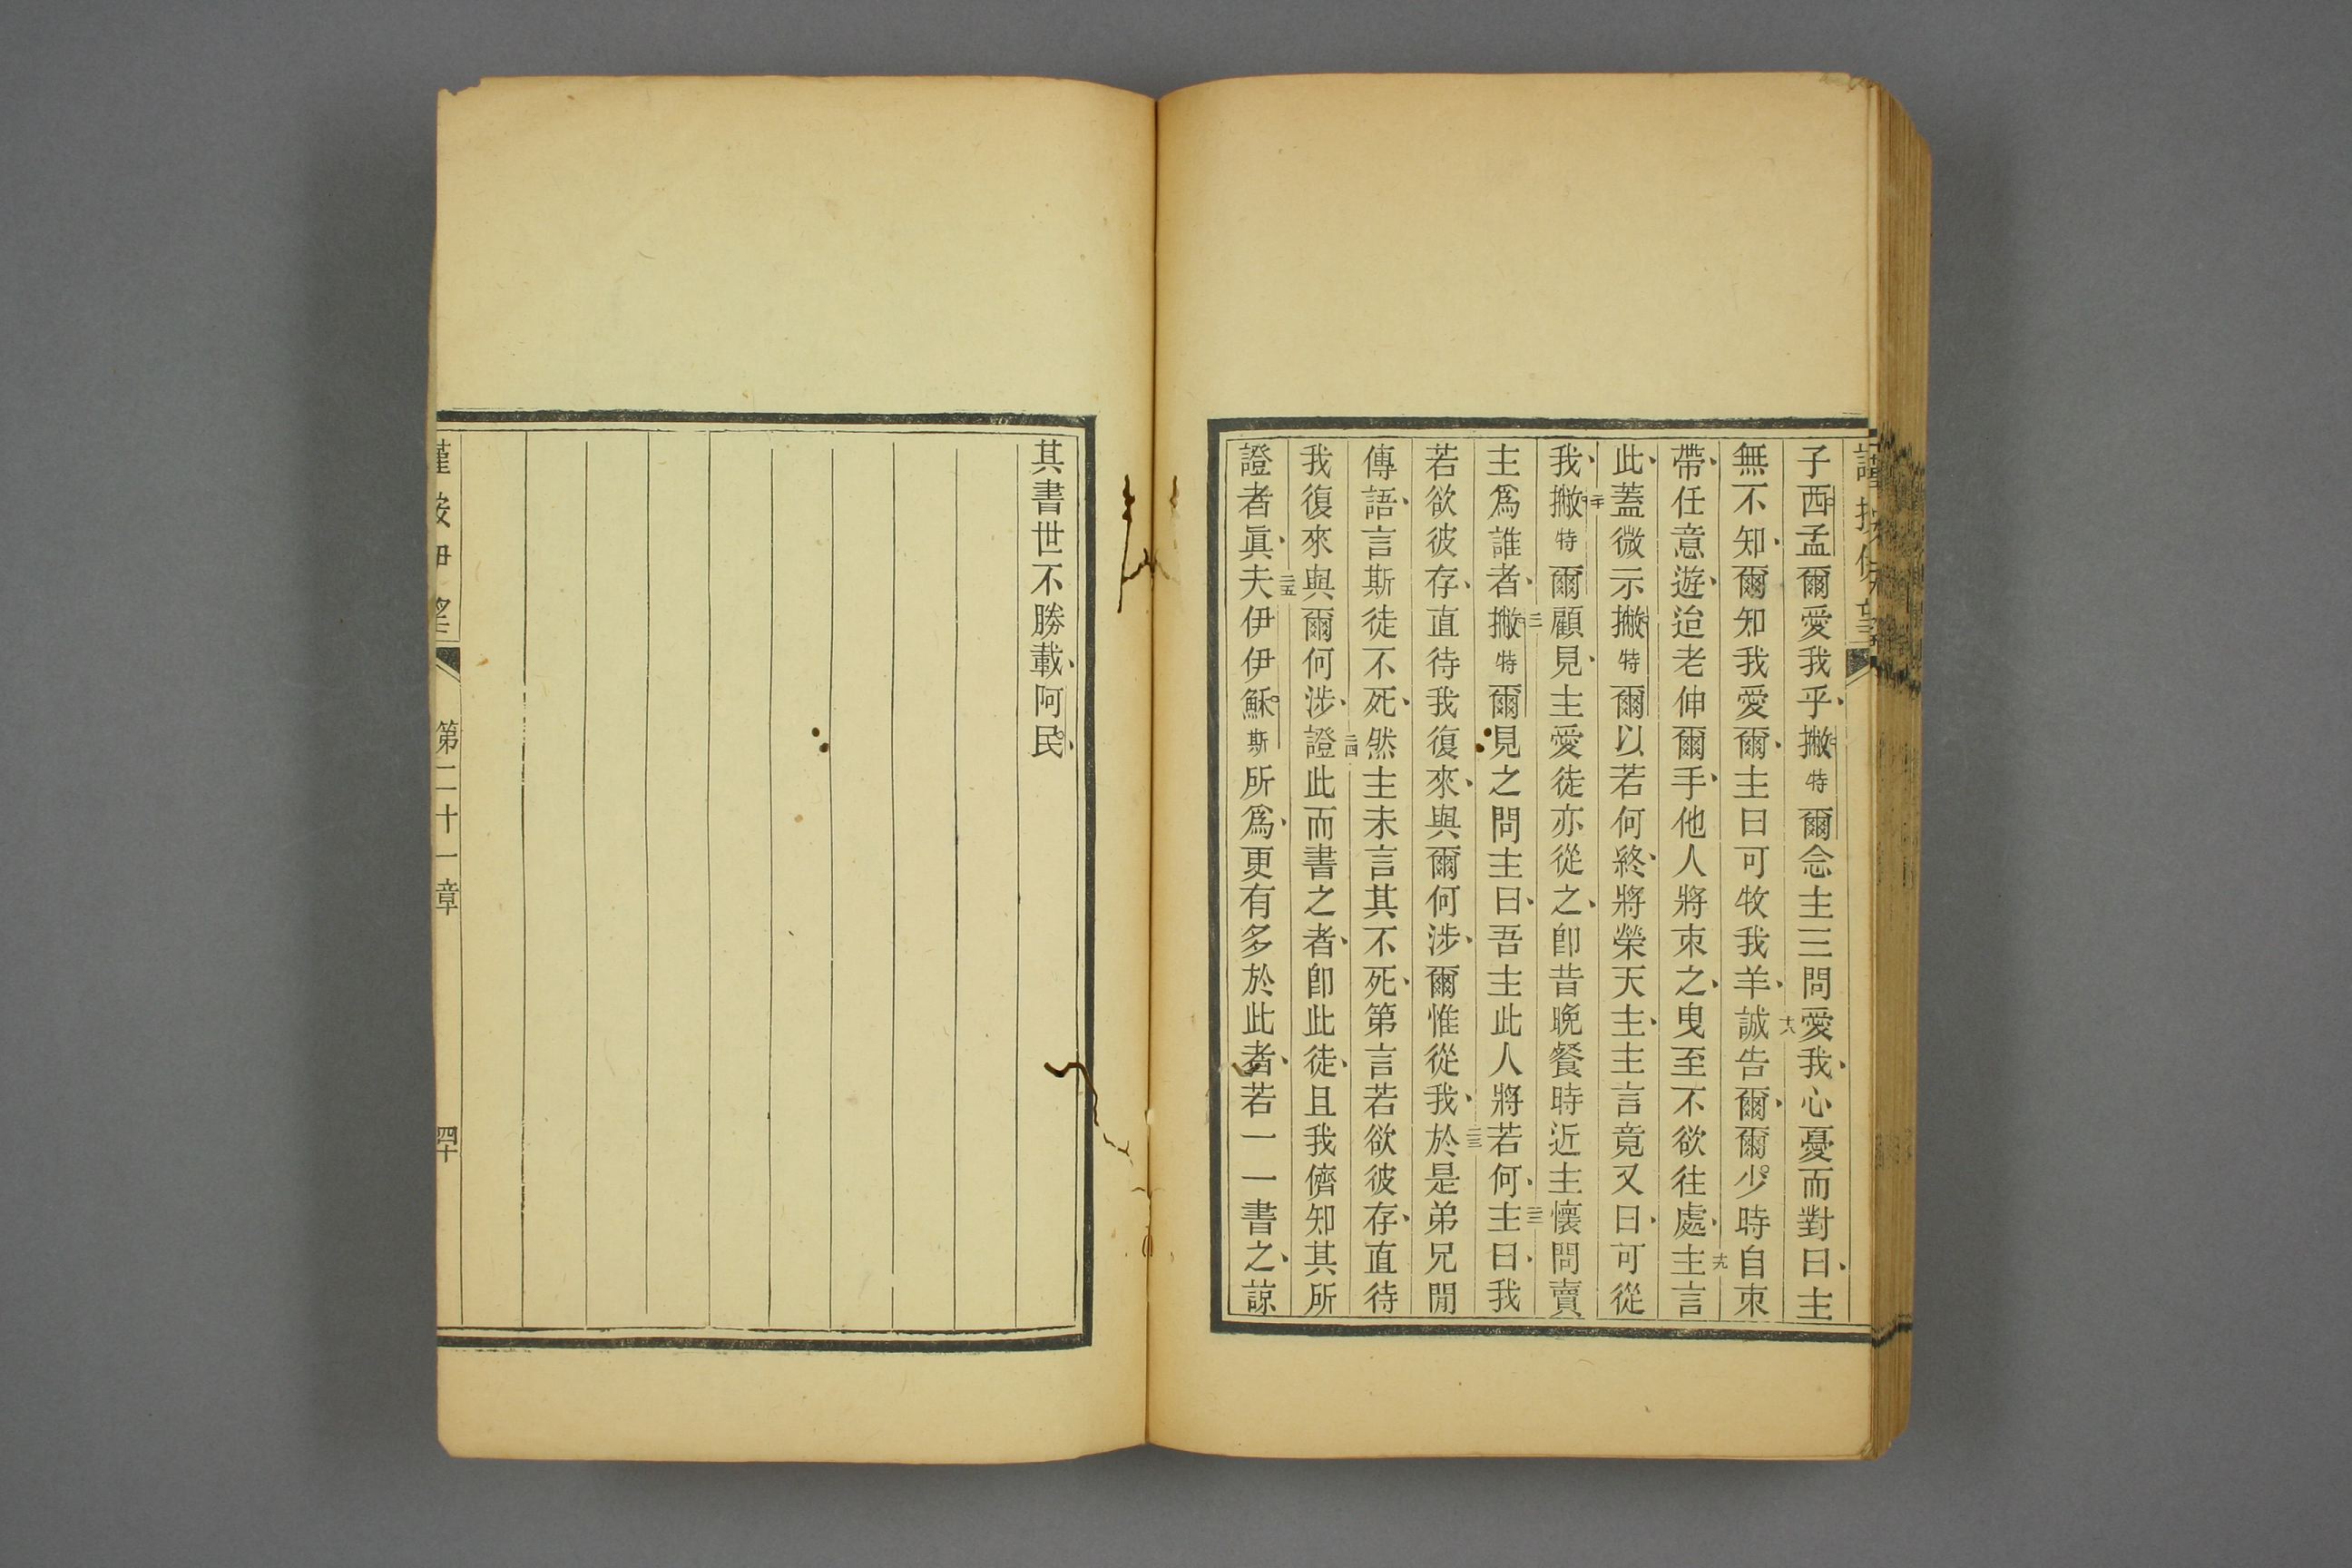 子西孟爾愛我乎撇特爾念主三問愛我心憂而對曰主
無不知爾知我愛爾主曰可牧我羊十八誠告爾爾少時自束
帶任意遊迨老伸爾手他人將束之曳至不欲往處十九主言
此蓋微示撇特爾以若何終將榮天主主言竟又曰可從
我二十撇特爾顧見主愛徒亦從之卽昔晚餐時近主懷問賣
主爲誰者二一撇特爾見之問主曰吾主此人將若何二二主曰我
若欲彼存直待我復來與爾何涉爾惟從我二三於是弟兄閒
傳語言斯徒不死然主未言其不死第言若欲彼存直待
我復來與爾何涉二四證此而書之者卽此徒且我儕知其所
證者眞二五夫伊伊穌斯所爲更有多於此者若一一書之諒
其書世不勝載阿民
第二十一章
四十